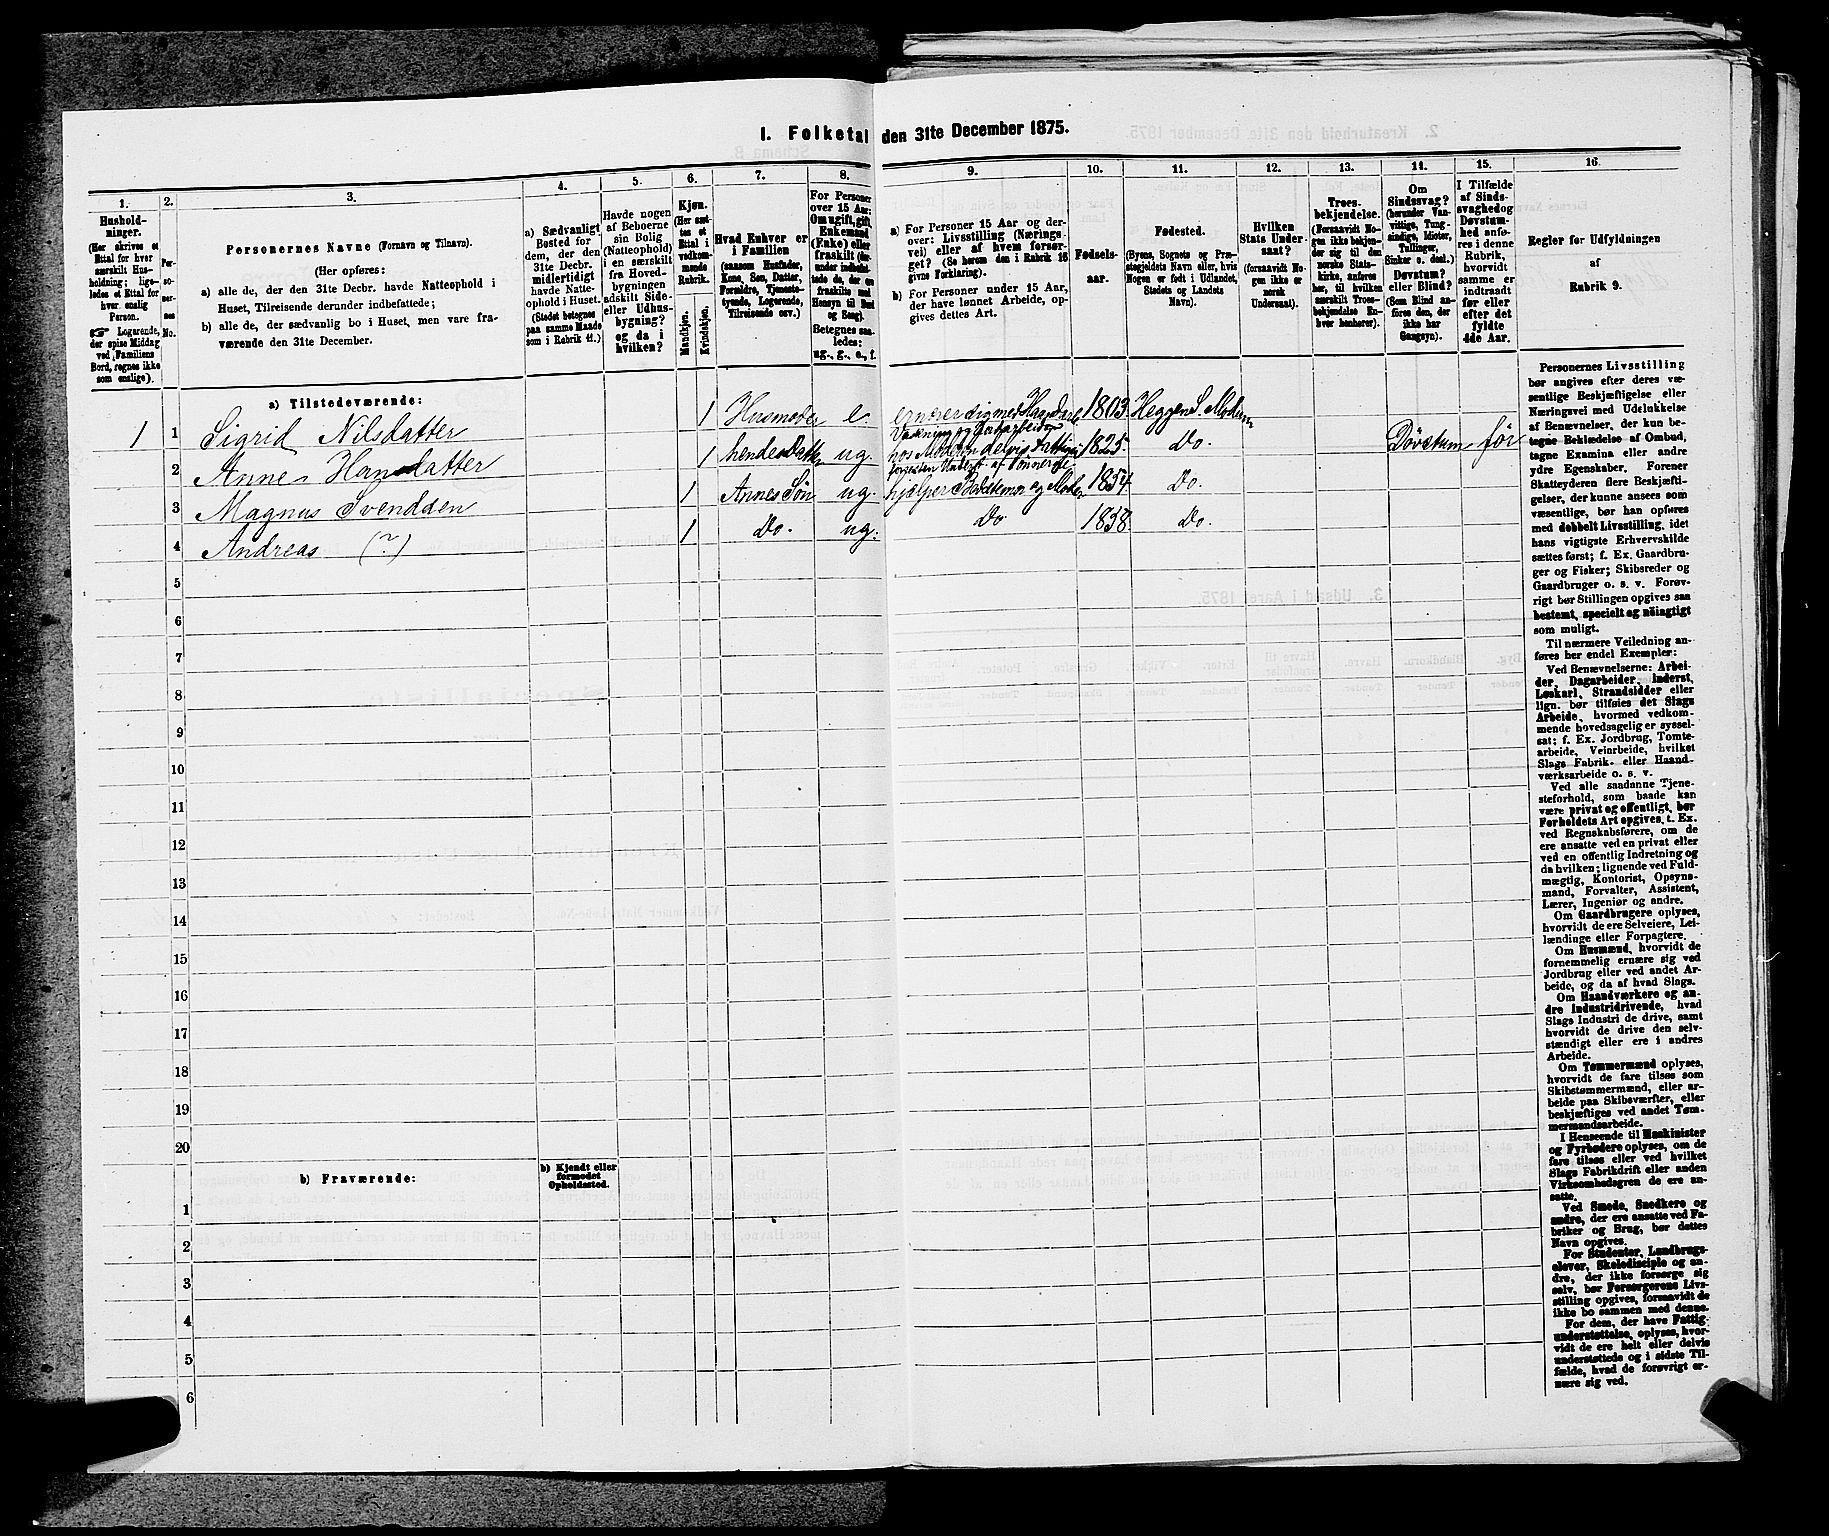 I. Folketal den 31te December 1875.
1. 2. 3. 4. 5. 6. 7. 8. 9. 10. 11. 12. 13. 14. 15. 16.
Hushold-
ninger.
(Her skrives et
Ettal for hver
særskilt Hus-
holdning; lige-
ledes et Ettal for
hver enslig
Person.
☞ Logerende,
der spise Middag
ved Familiens
Bord, regnes ikke
som enslige).
Per-
so-
ner-
nes
No.
Personernes Navne (Fornavn og Tilnavn).
(Her opføres:
a) alle de, der den 31te Decbr. havde Natteophold i
Huset, Tilreisende derunder indbefattede;
b) alle de, der sædvanlig bo i Huset, men vare fra-
værende den 31te December.
a) Sædvanligt
Bosted for
dem, der den
31te Decbr.
midlertidigt
havde Natte-
ophold i Huset.
(Stedet betegnes
paa samme Maade
som i Rubrik 11.)
Havde nogen
af Beboerne
sin Bolig
(Natteophold)
i en særskilt
fra Hoved-
bygningen
adskilt Side-
eller Udhus-
bygning?
og da i
hvilken?
Kjøn.
(Her sæt-
tes et
Ettal i
vedkom-
mende
Rubrik.
Mandkjøn.
Kvindekjøn.
Hvad Enhver er
i Familien
(saasom Husfader,
Kone, Søn, Datter,
Forældre, Tjeneste-
tyende, Logerende,
Tilreisende osv.)
For Personer
over 15 Aar:
Om ugift, gift,
Enkemand
(Enke) eller
fraskilt (der-
under indbefat-
tede de, der ere
fraskilte med
Hensyn til Bord
og Seng).
Betegnes saa-
ledes:
ug., g., e., f.
a) For Personer 15 Aar og der-
over: Livsstilling (Nærings-
vei) eller af hvem forsør-
get? (Se herom den i Rubrik 16
givne Forklaring).
b) For Personer under 15 Aar,
der have lønnet Arbeide, op-
gives dettes Art.
Fødsels-
aar.
Fødested.
(Byens, Sognets og Præ-
stegjeldets Navn eller, hvis
Nogen er født i Udlandet,
Stedets og Landets
Navn).
Hvilken
Stats Under-
saat?
(forsaavidt No-
gen ikke er
norsk
Undersaat).
Troes-
bekjendelse.
(Forsaavidt No-
gen ikke bekjen-
der sig til den
norske Stats-
kirke, anføres
her, til hvilken
særskilt Troes-
bekjendelse En-
hver henhører).
Om
Sindssvag?
(herunder Van-
vittige, Tung-
sindige, Idioter,
Tullinger,
Sinker o. desl.)
Døvstum?
eller Blind?
(Som Blind an-
føres den, der
ikke har
Gangsyn).
I Tilfælde
af Sinds-
svaghed og
Døvstum-
hed anfø-
res i denne
Rubrik,
hvorvidt
samme er
indtraadt
før eller
efter det
fyldte
4de Aar.
Regler for Udfyldningen
af
Rubrik 9.
a) Tilstedeværende:
1 1 Sigrid Nilsdatter 1 Husmoder e. ernærer sig med Haandarb. 1803. Heggen S. Modum
2 Anne Hansdatter 1 hendes Datter ug. 1825. Do. Døvstum før
3 Magnus Svendsen 1 Annes Søn ug. hjælper Bedstemor og Moder 1854. Do.
4 Andreas (?) 1 Do. ug. Do 1858 Do.
5
6
7
8
9
10
11
12
13
14
15
16
17
18
19
20
b) Fraværende:
b) Kjendt eller
formodet
Opholdssted.
1
2
3
4
5
6
Personernes Livsstilling
bør angives efter deres væ-
sentlige Beskjæftigelse eller
Næringsvei med Udelukkelse
af Benævnelser, der kun be-
tegne Beklædelse af Ombud,
tagne Examina eller andre
ydre Egenskaber. Forener
Skatteyderen flere Beskjæfti-
gelser, der kunne ansees som
væsentlige, bør han opføres
med dobbelt Livsstilling, idet
hans vigtigste Erhvervskilde
sættes først; f. Ex. Gaardbru-
ger og Fisker; Skibsreder og
Gaardbruger o. s. v. Forøv-
rigt bør Stillingen opgives saa
bestemt, specielt og nöiagtigt
som muligt.
Til nærmere Veiledning an-
føres her endel Exempler:
Ved Benævnelserne: Arbei-
der, Dagarbeider, Inderst,
Løskarl, Strandsidder eller
lign. bør tilføies det Slags
Arbeide, hvormed vedkom-
mende hovedsagelig er syssel-
sat; f. Ex. Jordbrug, Tomte-
arbeide, Veiarbeide, hvilket
Slags Fabrik- eller Haand-
værksarbeide o. s. v.
Ved alle saadanne Tjene-
steforhold, som baade kan
være privat og offentligt, bør
Forholdets Art opgives, t. Ex.
ved Regnskabsførere, om de
ere ansatte ved en privat eller
ved en offentlig Indretning og
da hvilken; lignende ved Fuld-
mægtig, Kontorist, Opsyns-
mand, Forvalter, Assistent,
Lærer, Ingeniør og andre.
Om Gaardbrugere oplyses,
hvorvidt de ere Selveiere, Lei-
lændinge eller Forpagtere.
Om Husmænd, hvorvidt de
fornemmelig ernære sig ved
Jordbrug eller ved andet Ar-
beide, og da af hvad Slags.
Om Haandværkere og an-
dre Industridrivende, hvad
Slags Industri de drive, samt
hvorvidt de drive den selv-
stændigt eller ere i andres
Arbeide.
Om Tømmermænd oplyses,
hvorvidt de fare tilsøs som
Skibstømmermænd, eller ar-
beide paa Skibsværfter, eller
beskjæftiges ved andet Tøm-
mermandsarbeide.
I Henseende til Maskinister
og Fyrbødere oplyses, om de
fare tilsøs eller ved hvilket
Slags Fabrikdrift eller anden
Virksomhedsgren de ere an-
satte.
Ved Smede, Snedkere og
andre, der ere ansatte ved Fa-
briker og Brug, bør dettes
Navn opgives.
For Studenter, Landbrugs-
elever, Skoledisciple og an-
dre, der ikke forsørge sig
selv, bør Forsørgerens Livs-
stilling opgives, forsaavidt de
ikke bo sammen med denne.
For dem, der have Fattig-
understøttelse, oplyses, hvor-
vidt de ere helt eller delvis
understøttede og i sidste Til-
fælde, hvad de forøvrigt er-
nære sig ved.